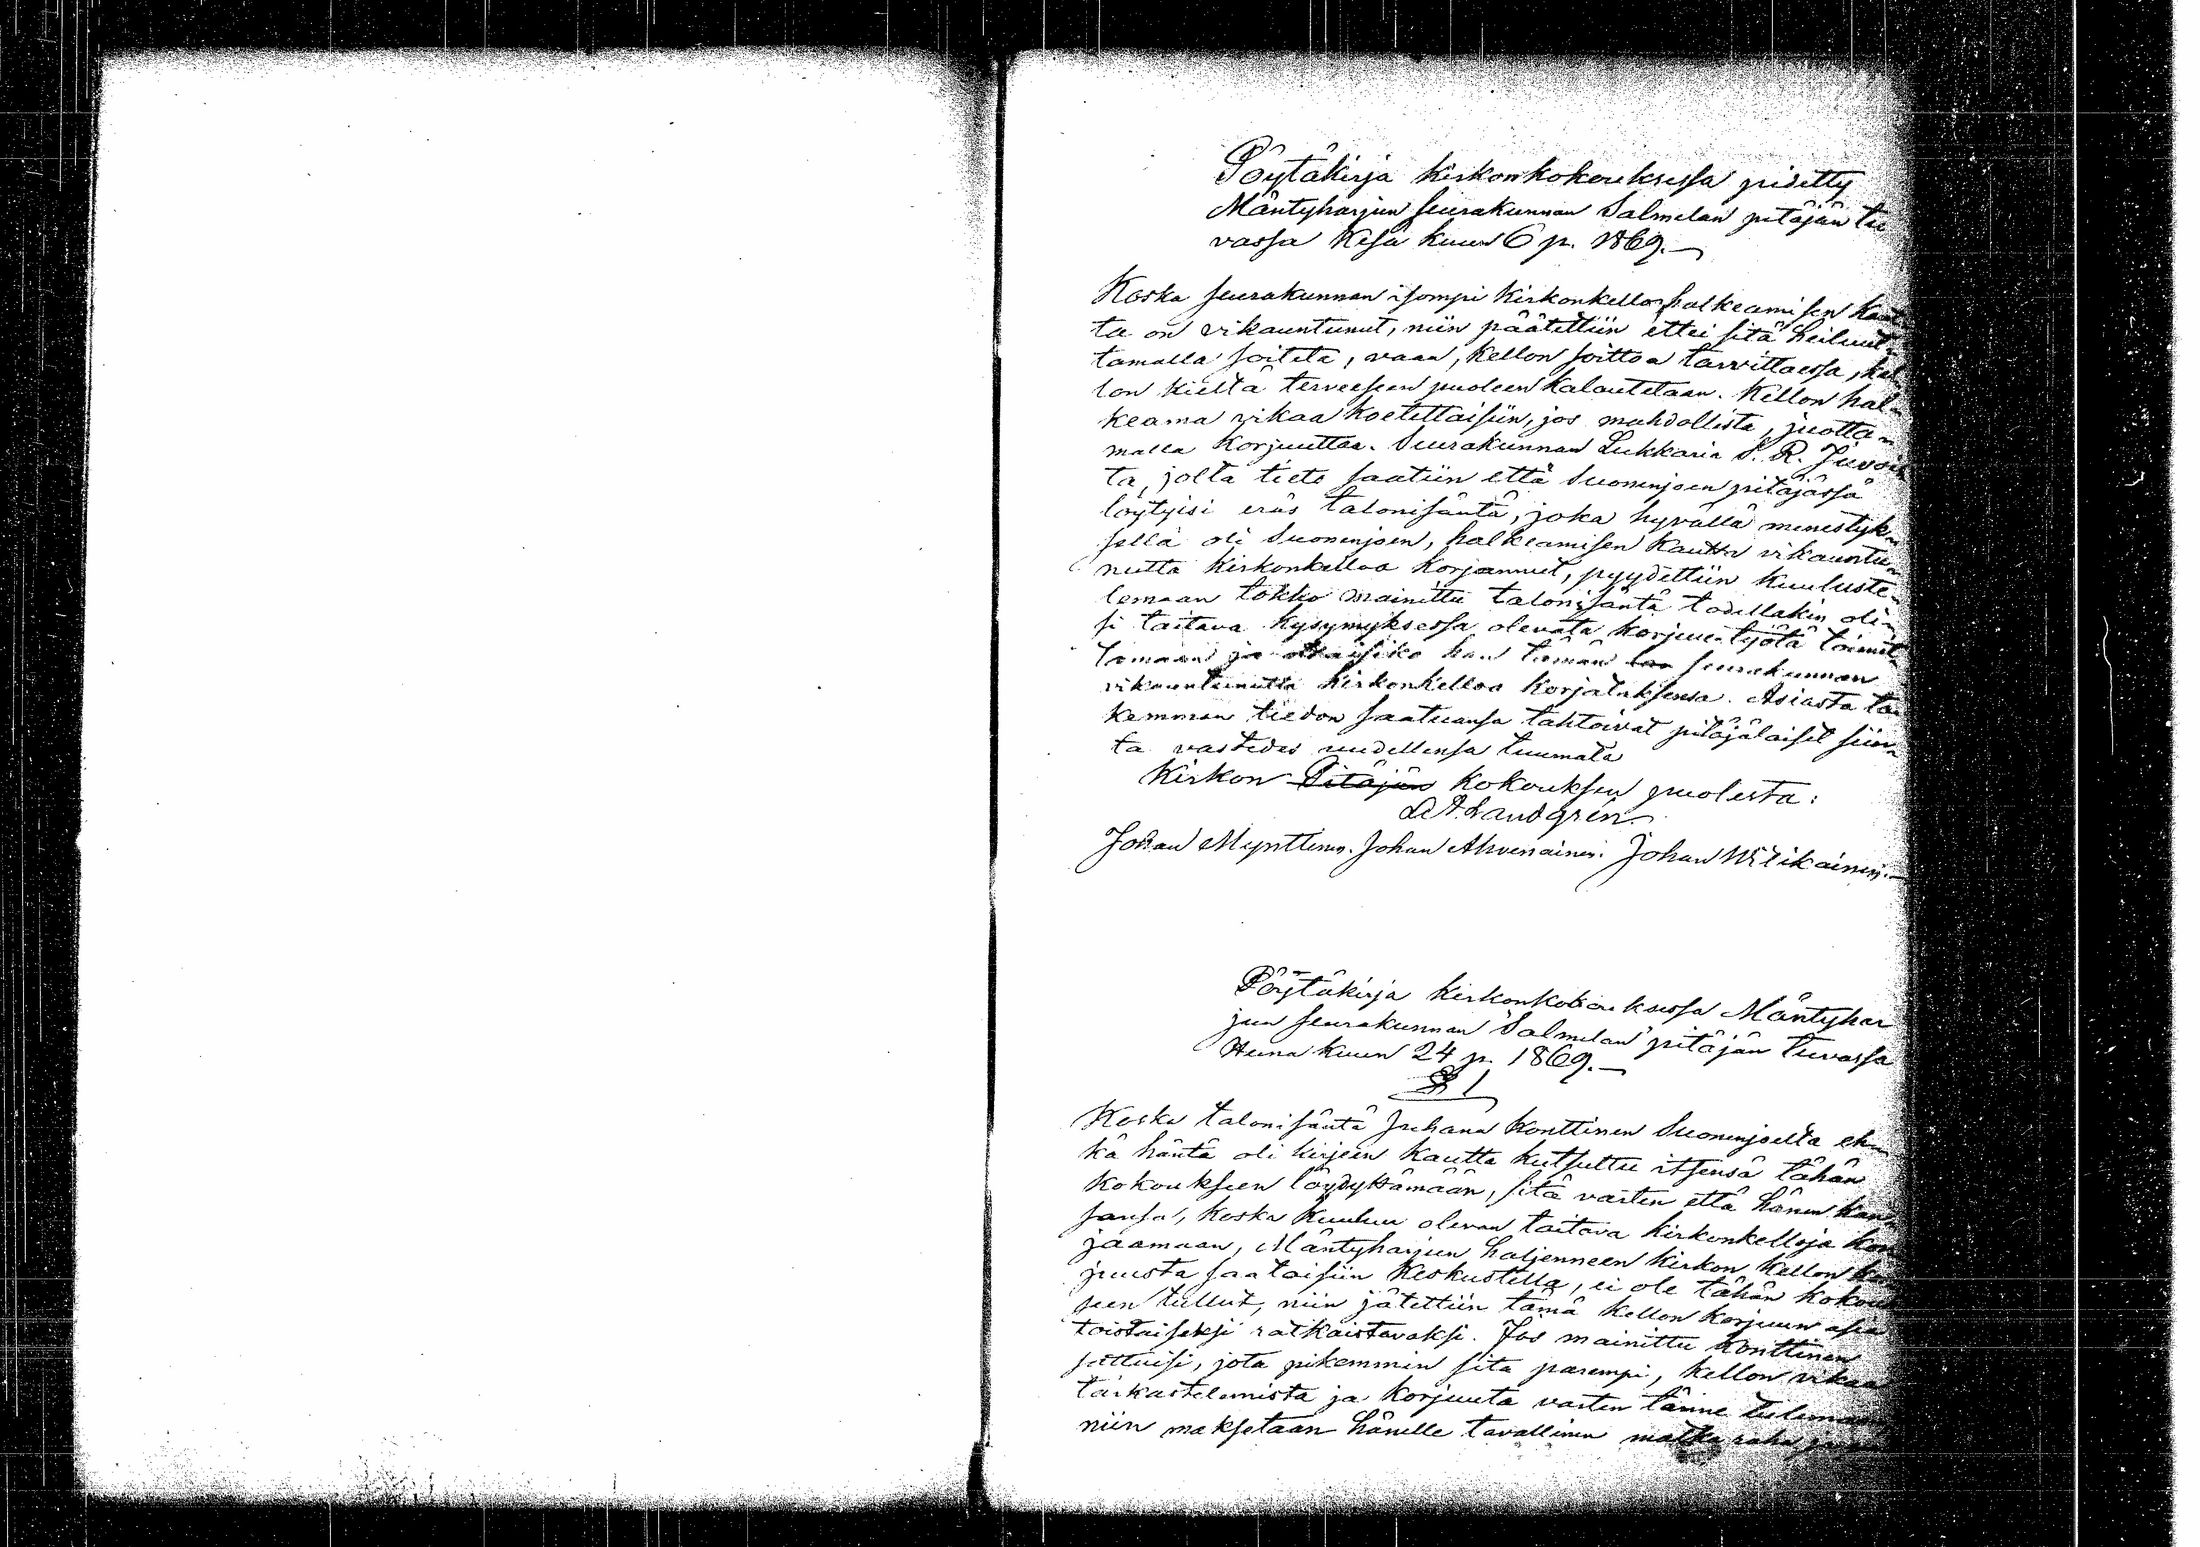 Pöytäkirja kirkonkokouksessa pidetty
Mäntyharjun seurakunnan Salmelan pitäjän tu
vassa Kesä kuun 6 p. 1869.
Koska seurakunnan isompi kirkonkello halkeamisen kaut
ta on vikauntunut, niin päätettiin ettei sitä heiluut-
tamalla soiteta, vaan, kellon soittoa tarvittaessa, kel
lon kieltä terveeseen puoleen kalautetaan. Kellon hal-
keama vikaa koetettaisiin, jos mahdollista, juotta-
malla korjuuttaa. Seurakunnan Lukkaria S. R.
ta, jolta tieto saatiin että Suonenjoen pitäjässä
löytyisi eräs talonisäntä, joka hyvällä menestyk-
sellä oli Suonenjoen, halkeamisen kautta vikauntu-
nutta kirkonkelloa korjannut, pyydettiin kuuluste-
lemaan tokko mainittu talonisäntä todellakin oli-
si taitava kysymyksessä olevata korjuu työtä toimit-
tamaan ja ottaisiko hän tämän seurakunnan
vikauntunutta kirkonkelloa korjataksensa. Asiasta tar
kemman tiedon saatuansa tahtoivat pitäjäläiset siin-
tä vastedes uudellensa tuumata
Kirkon Pitäjän kokouksen puolesta:
Landgrén
Johan Mynttinen. Johan Ahvenainen. Johan Witikainen.
Pöytäkirja kirkonkokouksessa Mäntyhar
jun seurakunnan Salmelan pitäjän tuvassa
Heinä kuun 24 p. 1869.
§ 1
Koska talonisäntä Juhana Konttinen Suonenjoelta eh-
kä häntä oli kirjeen kautta kutsuttu itsensä tähän
kokoukseen löydyttämään, sitä varten että hänen kan-
sansa, koska kuuluu olevan taitava kirkonkelloja kor
jaamaan, Mäntyharjun haljenneen kirkon kellon kor
juusta saataisiin keskustella, ei ole tähän kokouk
seen tullut, niin jätettiin tämä kellon korjuun asia
toistaiseksi ratkaistavaksi. Jos mainittu Konttinen
sattuisi, jota pikemmin sitä parempi, kellon vikaa
tarkastelemista ja korjuuta varten tänne tulemaan
niin maksetaan hänelle tavallinen matka raha ja